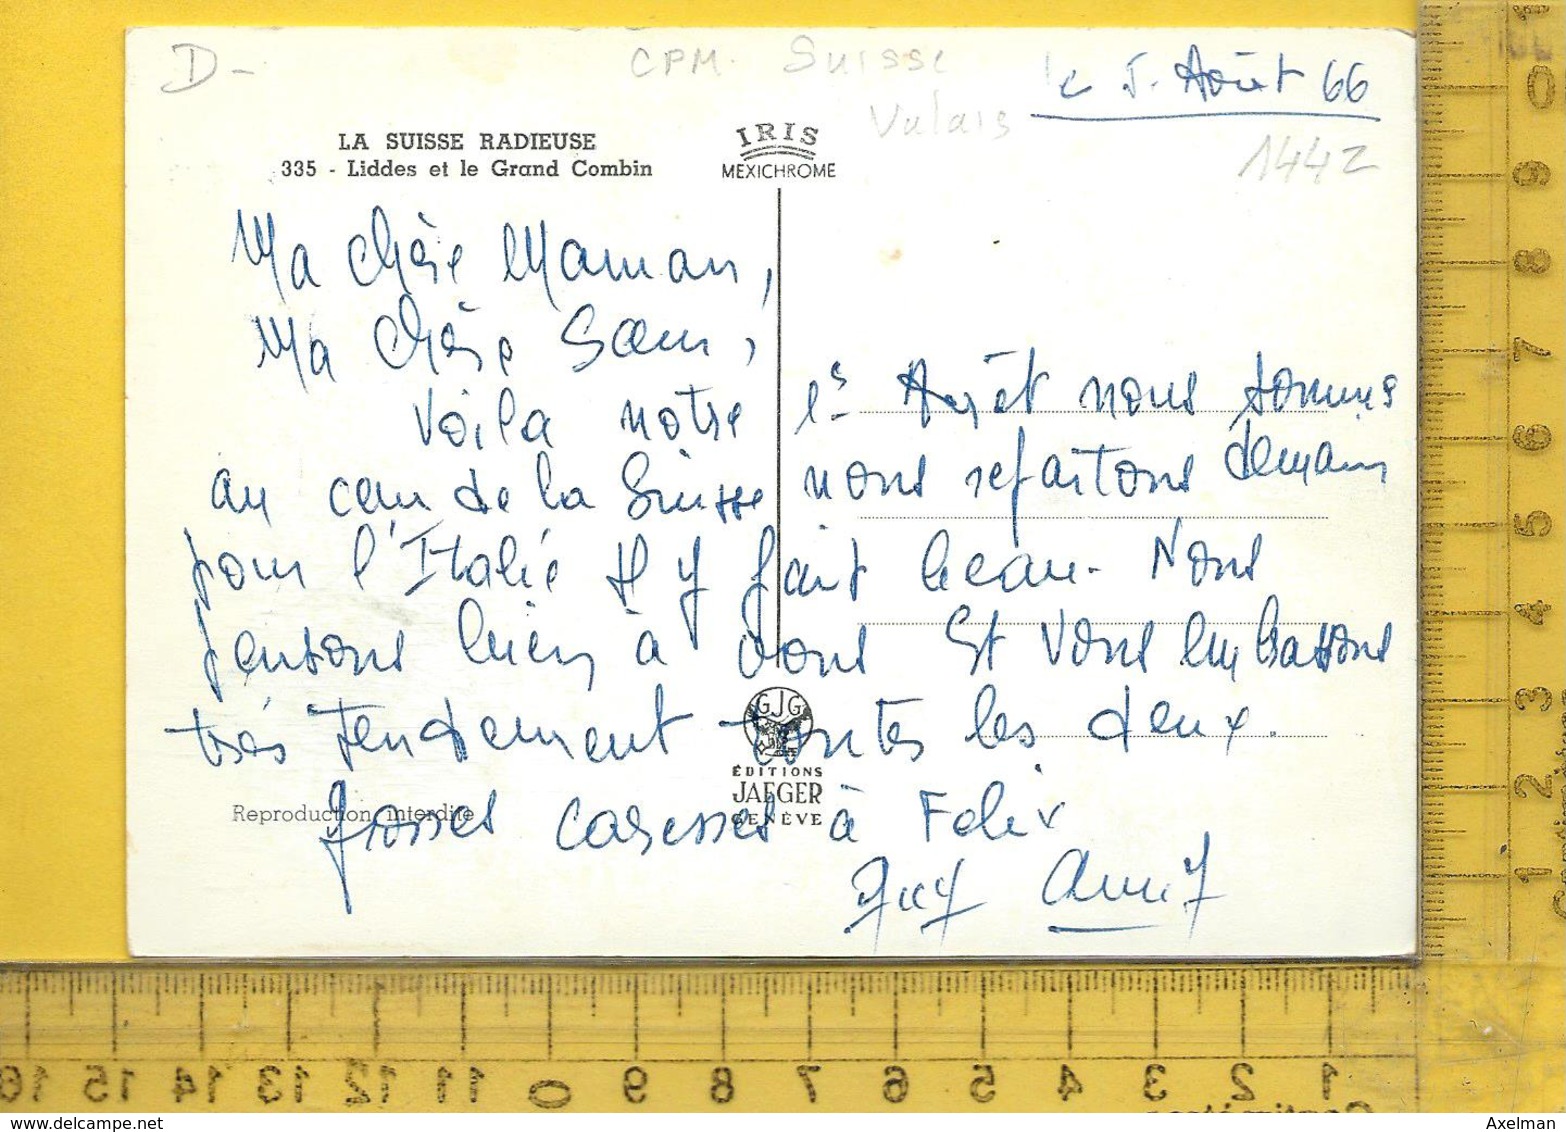 D-
CPM. Suisse
Valais
le 5. Août 66
1442
LA SUISSE RADIEUSE
335 - Liddes et le Grand Combin
IRIS
MEXICHROME
Ma chère Maman,
Ma chère Sœur,
Voila notre 1er Arrêt nous sommes
au cœur de la Suisse nous repartons demain
pour l'Italie Il y fait beau. Nous
pensons bien à vous Et vous embrassons
très tendrement toutes les deux.
Grosses caresses à Felix
Guy
GJG
ÉDITIONS
JAEGER
GENÈVE
Reproduction interdite
0
9
8
7
6
5
4
3
2
1
16
15
14
13
12
11
0
9
8
7
6
5
4
3
2
1
Centimètres
Axelman